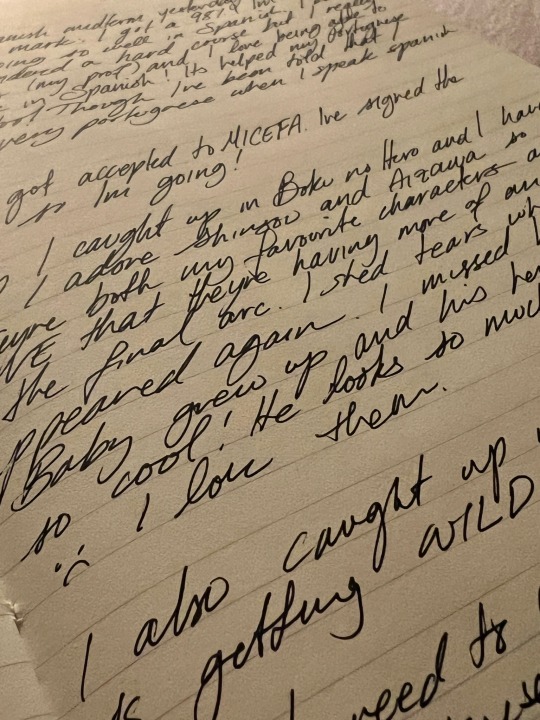 Spanish midterm, yesterday
mark. I got a 98%!
going so well in Spanish. I
considered a hard course but I really
(my prof) and love being able to
in Spanish! Its helped my Portuguese
too! Though Ive been told that I
very portuguese when I speak spanish
got accepted to MICEFA. Ive signed the
so Im going!
I caught up in Boku no Hero and I have
I adore Shinsou and Aizawa so
theyre both my favourite characters
LOVE that theyre having more of an
the final arc. I shed tears
appeared again. I missed
Baby grew up and his
so cool! He looks so much
:,( I love them.
I also caught up
is getting WILD
I need to